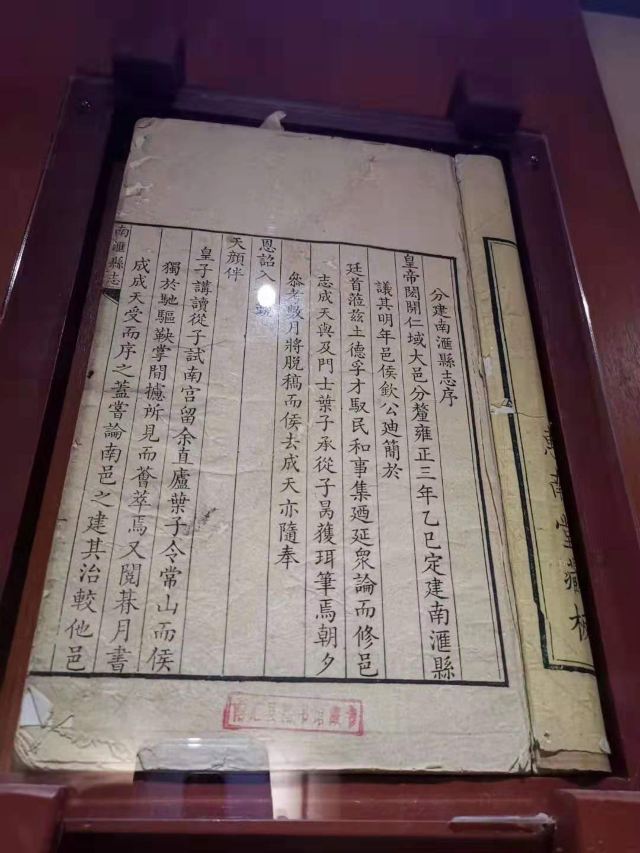 南堂藏板
分建南滙縣志序
皇帝闓開仁域大邑分釐雍正三年乙巳定建南滙縣
議其明年邑侯欽公廸簡於
廷首蒞兹土德孚才馭民和事集廼延衆論而修邑
志成天與及門士葉子承從子昺獲珥筆焉朝夕
參考數月將脱稿而侯去成天亦隨奉
恩詔入
天顔伴
皇子講讀從子試南宫留余直廬葉子令常山而侯
獨於馳驅鞅掌間攄所見而薈萃焉又閲暮月書
成成天受而序之蓋嘗論南邑之建其治較他邑
南滙縣志